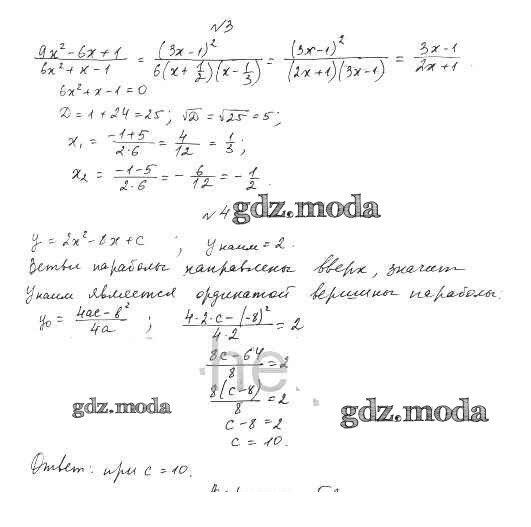 №3
(9x²-6x+1)/(6x²+x-1) = (3x-1)²/(6(x+1/2)(x-1/3)) = (3x-1)²/((2x+1)(3x-1)) = (3x-1)/(2x+1).
6x²+x-1=0
D=1+24=25; √D=√25=5;
x₁=(-1+5)/(2·6)=4/12=1/3;
x₂=(-1-5)/(2·6)=-6/12=-1/2.
№4 gdz.moda
y=2x²-8x+c ; yнаим=2.
Ветви параболы направлены вверх, значит
yнаим является ординатой вершины параболы.
y₀=(4ac-b²)/4a ; (4·2·c-(-8)²)/(4·2)=2
(8c-64)/8=2
8(c-8)/8=2
gdz.moda gdz.moda
c-8=2
c=10.
Ответ: при c=10.